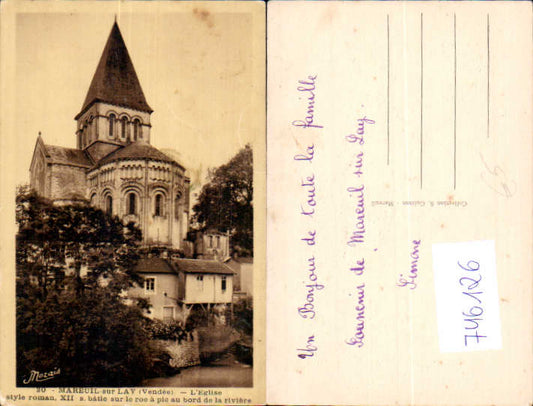 Morais
20 - MAREUIL sur LAY (Vendée) - L'Eglise
style roman, XII s. bâtie sur le roc à pic au bord de la rivière
Un Bonjour de toute la famille
Souvenir de Mareuil sur Lay.
Simone
Mareuil
65
746126